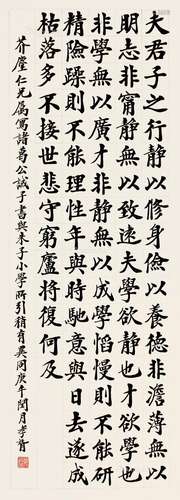 夫君子之行靜以修身儉以養德非澹薄無以
明志非甯靜無以致遠夫學欲靜也才欲學也
非學無以廣才非靜無以成學慆慢則不能研
精險躁則不能理性年與時馳意與日去遂成
枯落多不接世悲守窮廬將復何及
芥塵仁兄屬寫諸葛公誡子書與朱子小學所引稍有異同庚午閏月孝胥